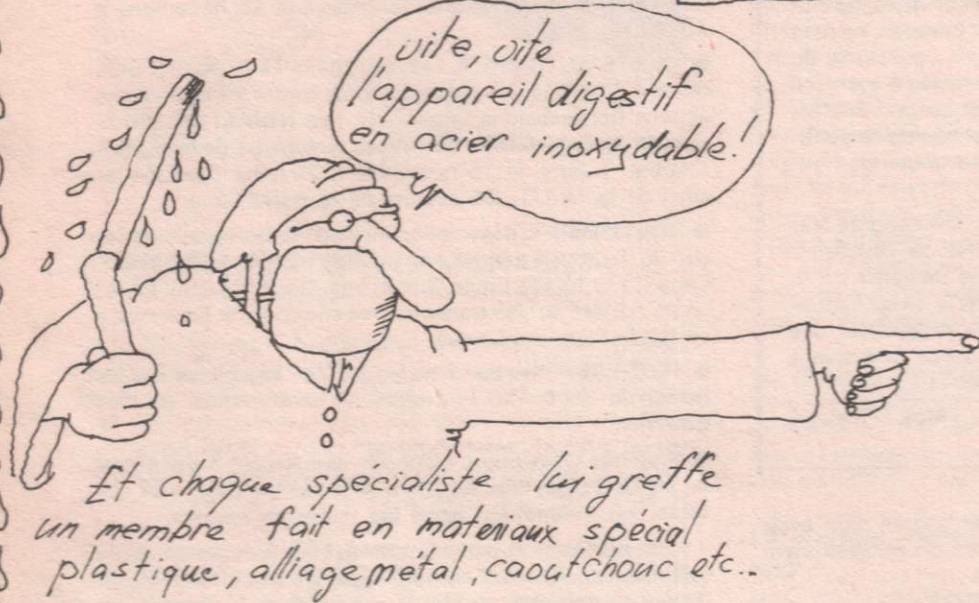 vite, vite
l'appareil digestif
en acier inoxydable!
Et chaque spécialiste lui greffe
un membre fait en materiaux spécial
plastique, alliage métal, caoutchouc etc..